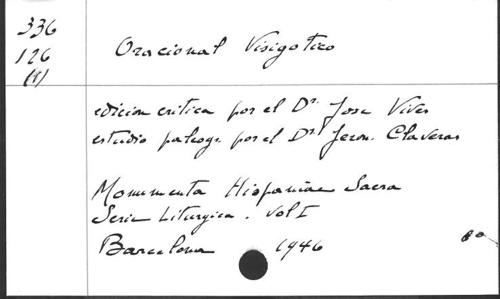 336
126
(1)
Oracional Visigotico
edicion critica por el Dr. Jose Vives
estudio paleogr. por el Dr. Jeron. Claveras
Monumenta Hispaniae Sacra
Serie Liturgica. Vol I
Barcelona 1946